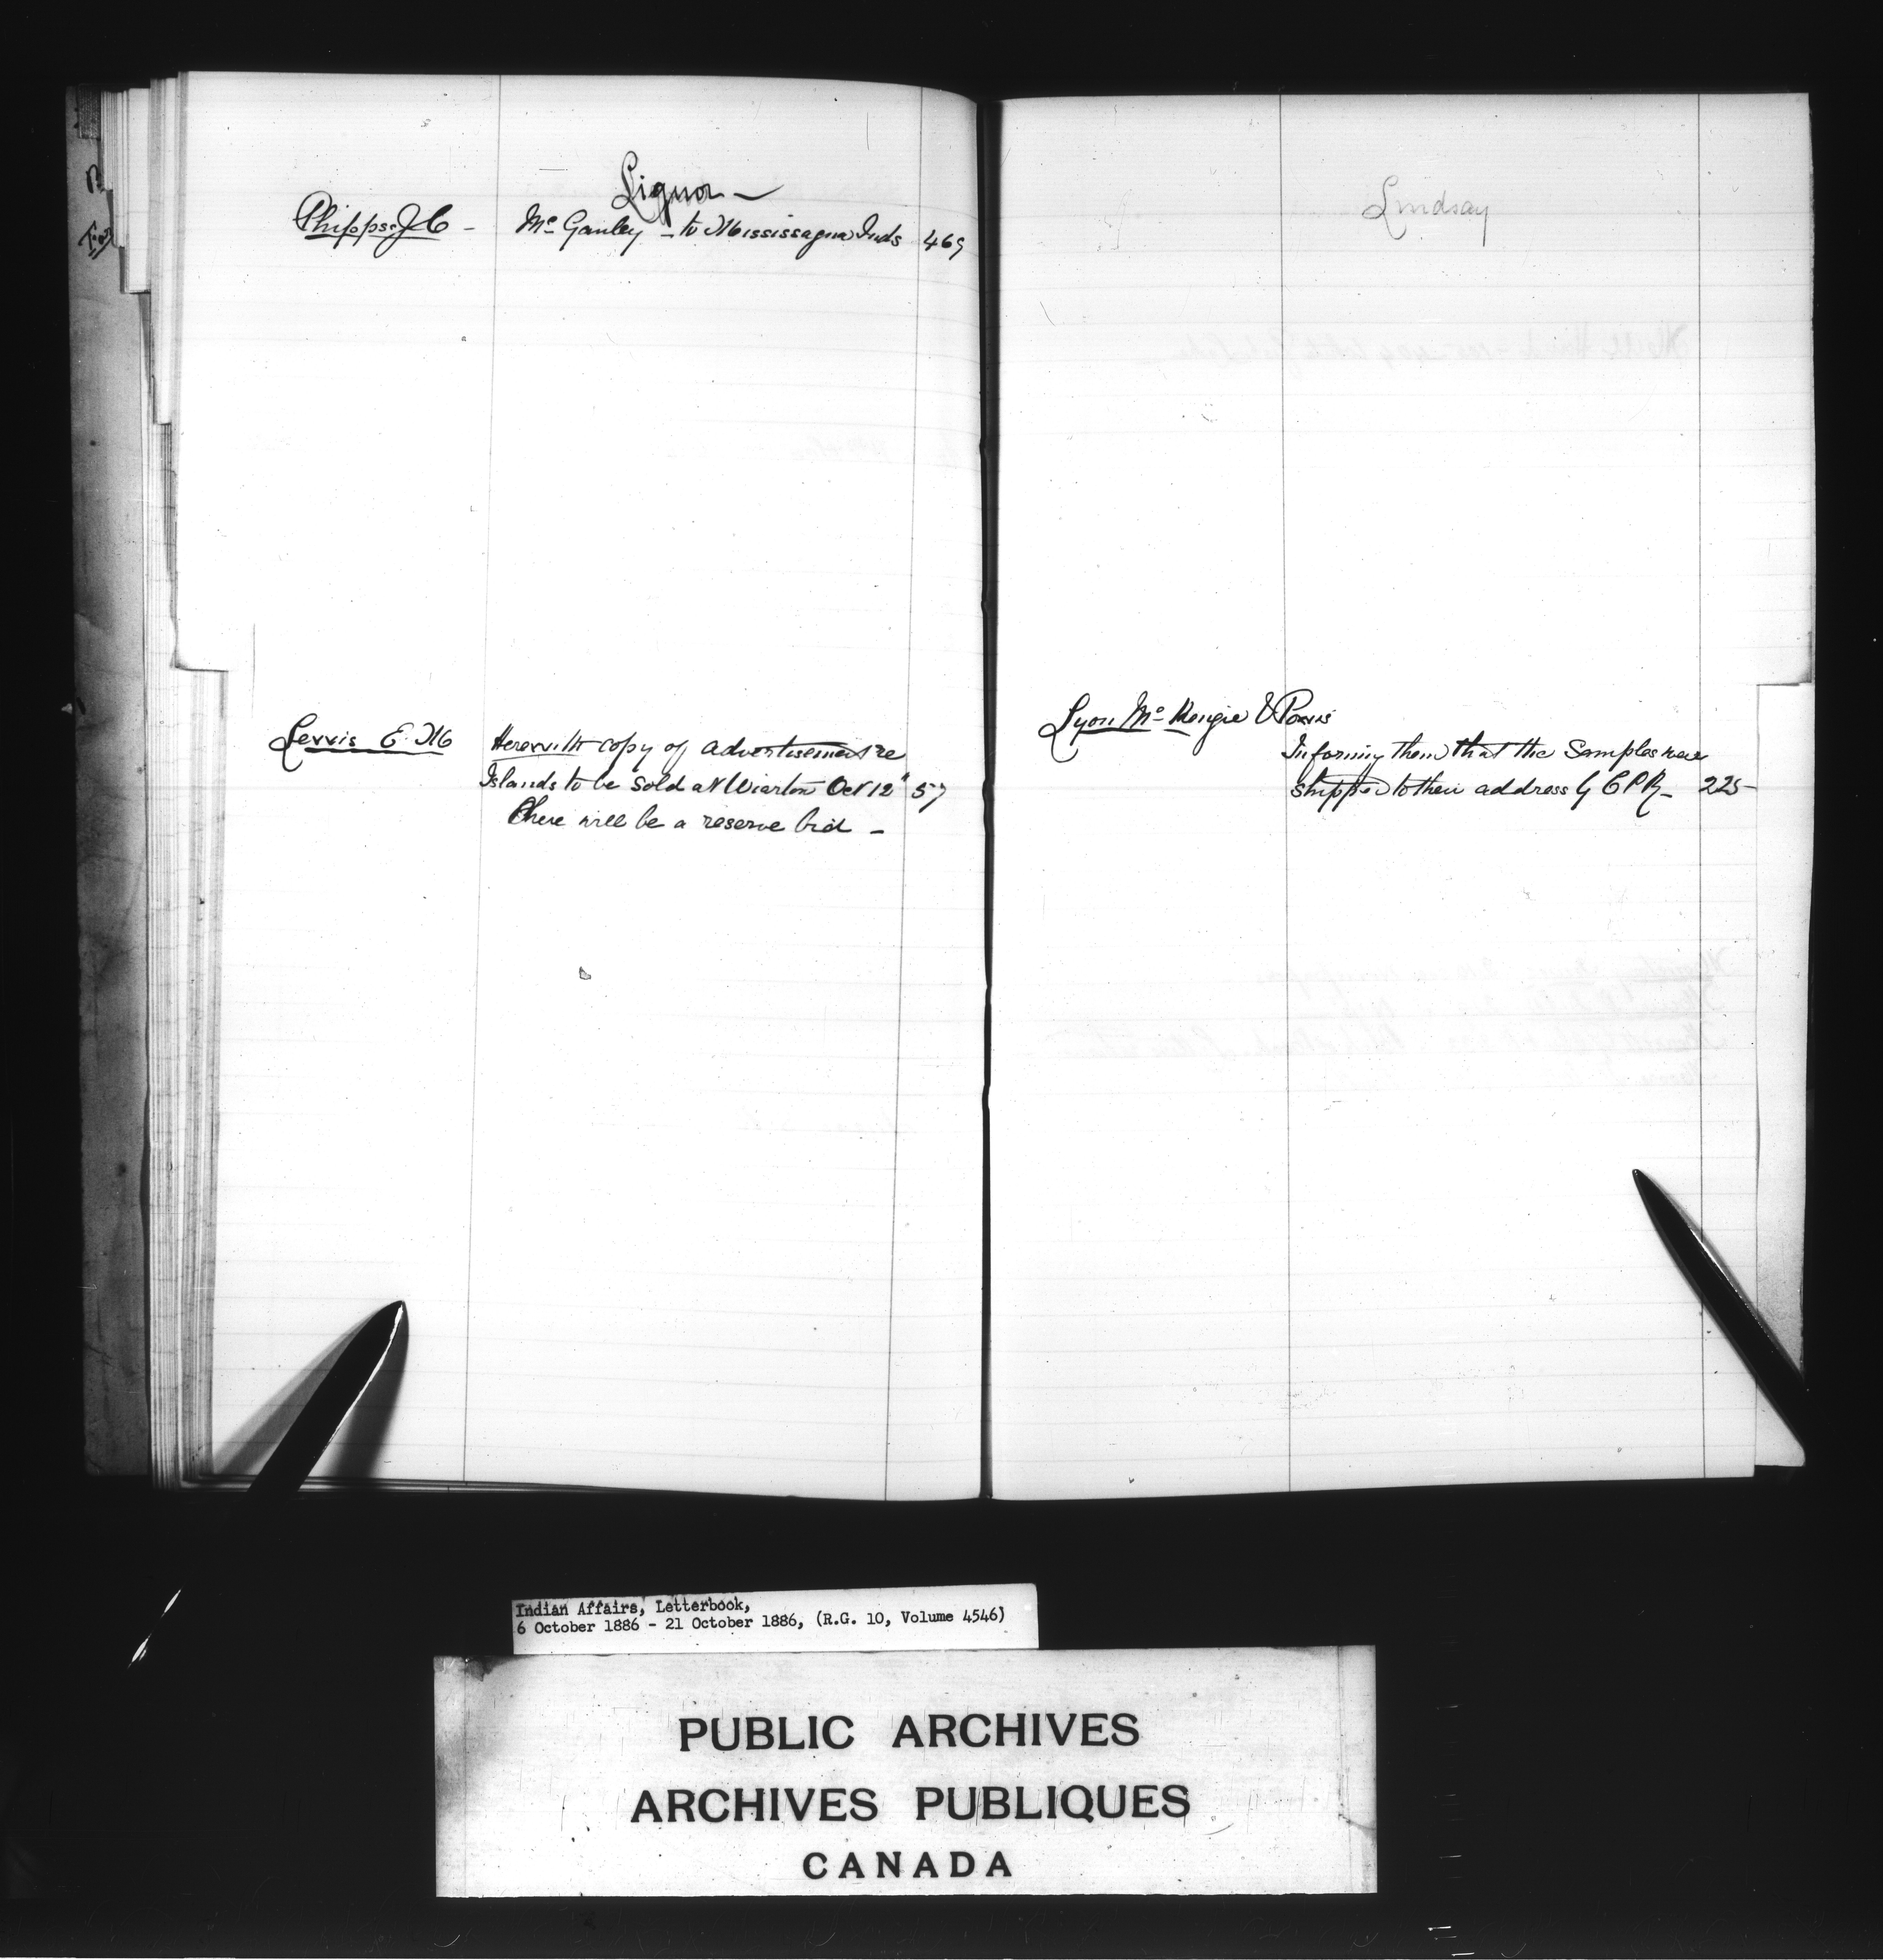 Liquor —
Phipps J C - Mc Ganley - to Mississagua Inds 469
Lewis E. M Herewith copy of advertisement re
Islands to be sold at Wiarton Oct 12" 57
There will be a reserve bid -
Lindsay
Lyon Mc Kenzie & Powis
Informing them that the Samples were
shipped to their address by C P R - 225
Indian Affairs, Letterbook,
6 October 1886 - 21 October 1886, (R.G. 10, Volume 4546)
PUBLIC ARCHIVES
ARCHIVES PUBLIQUES
CANADA